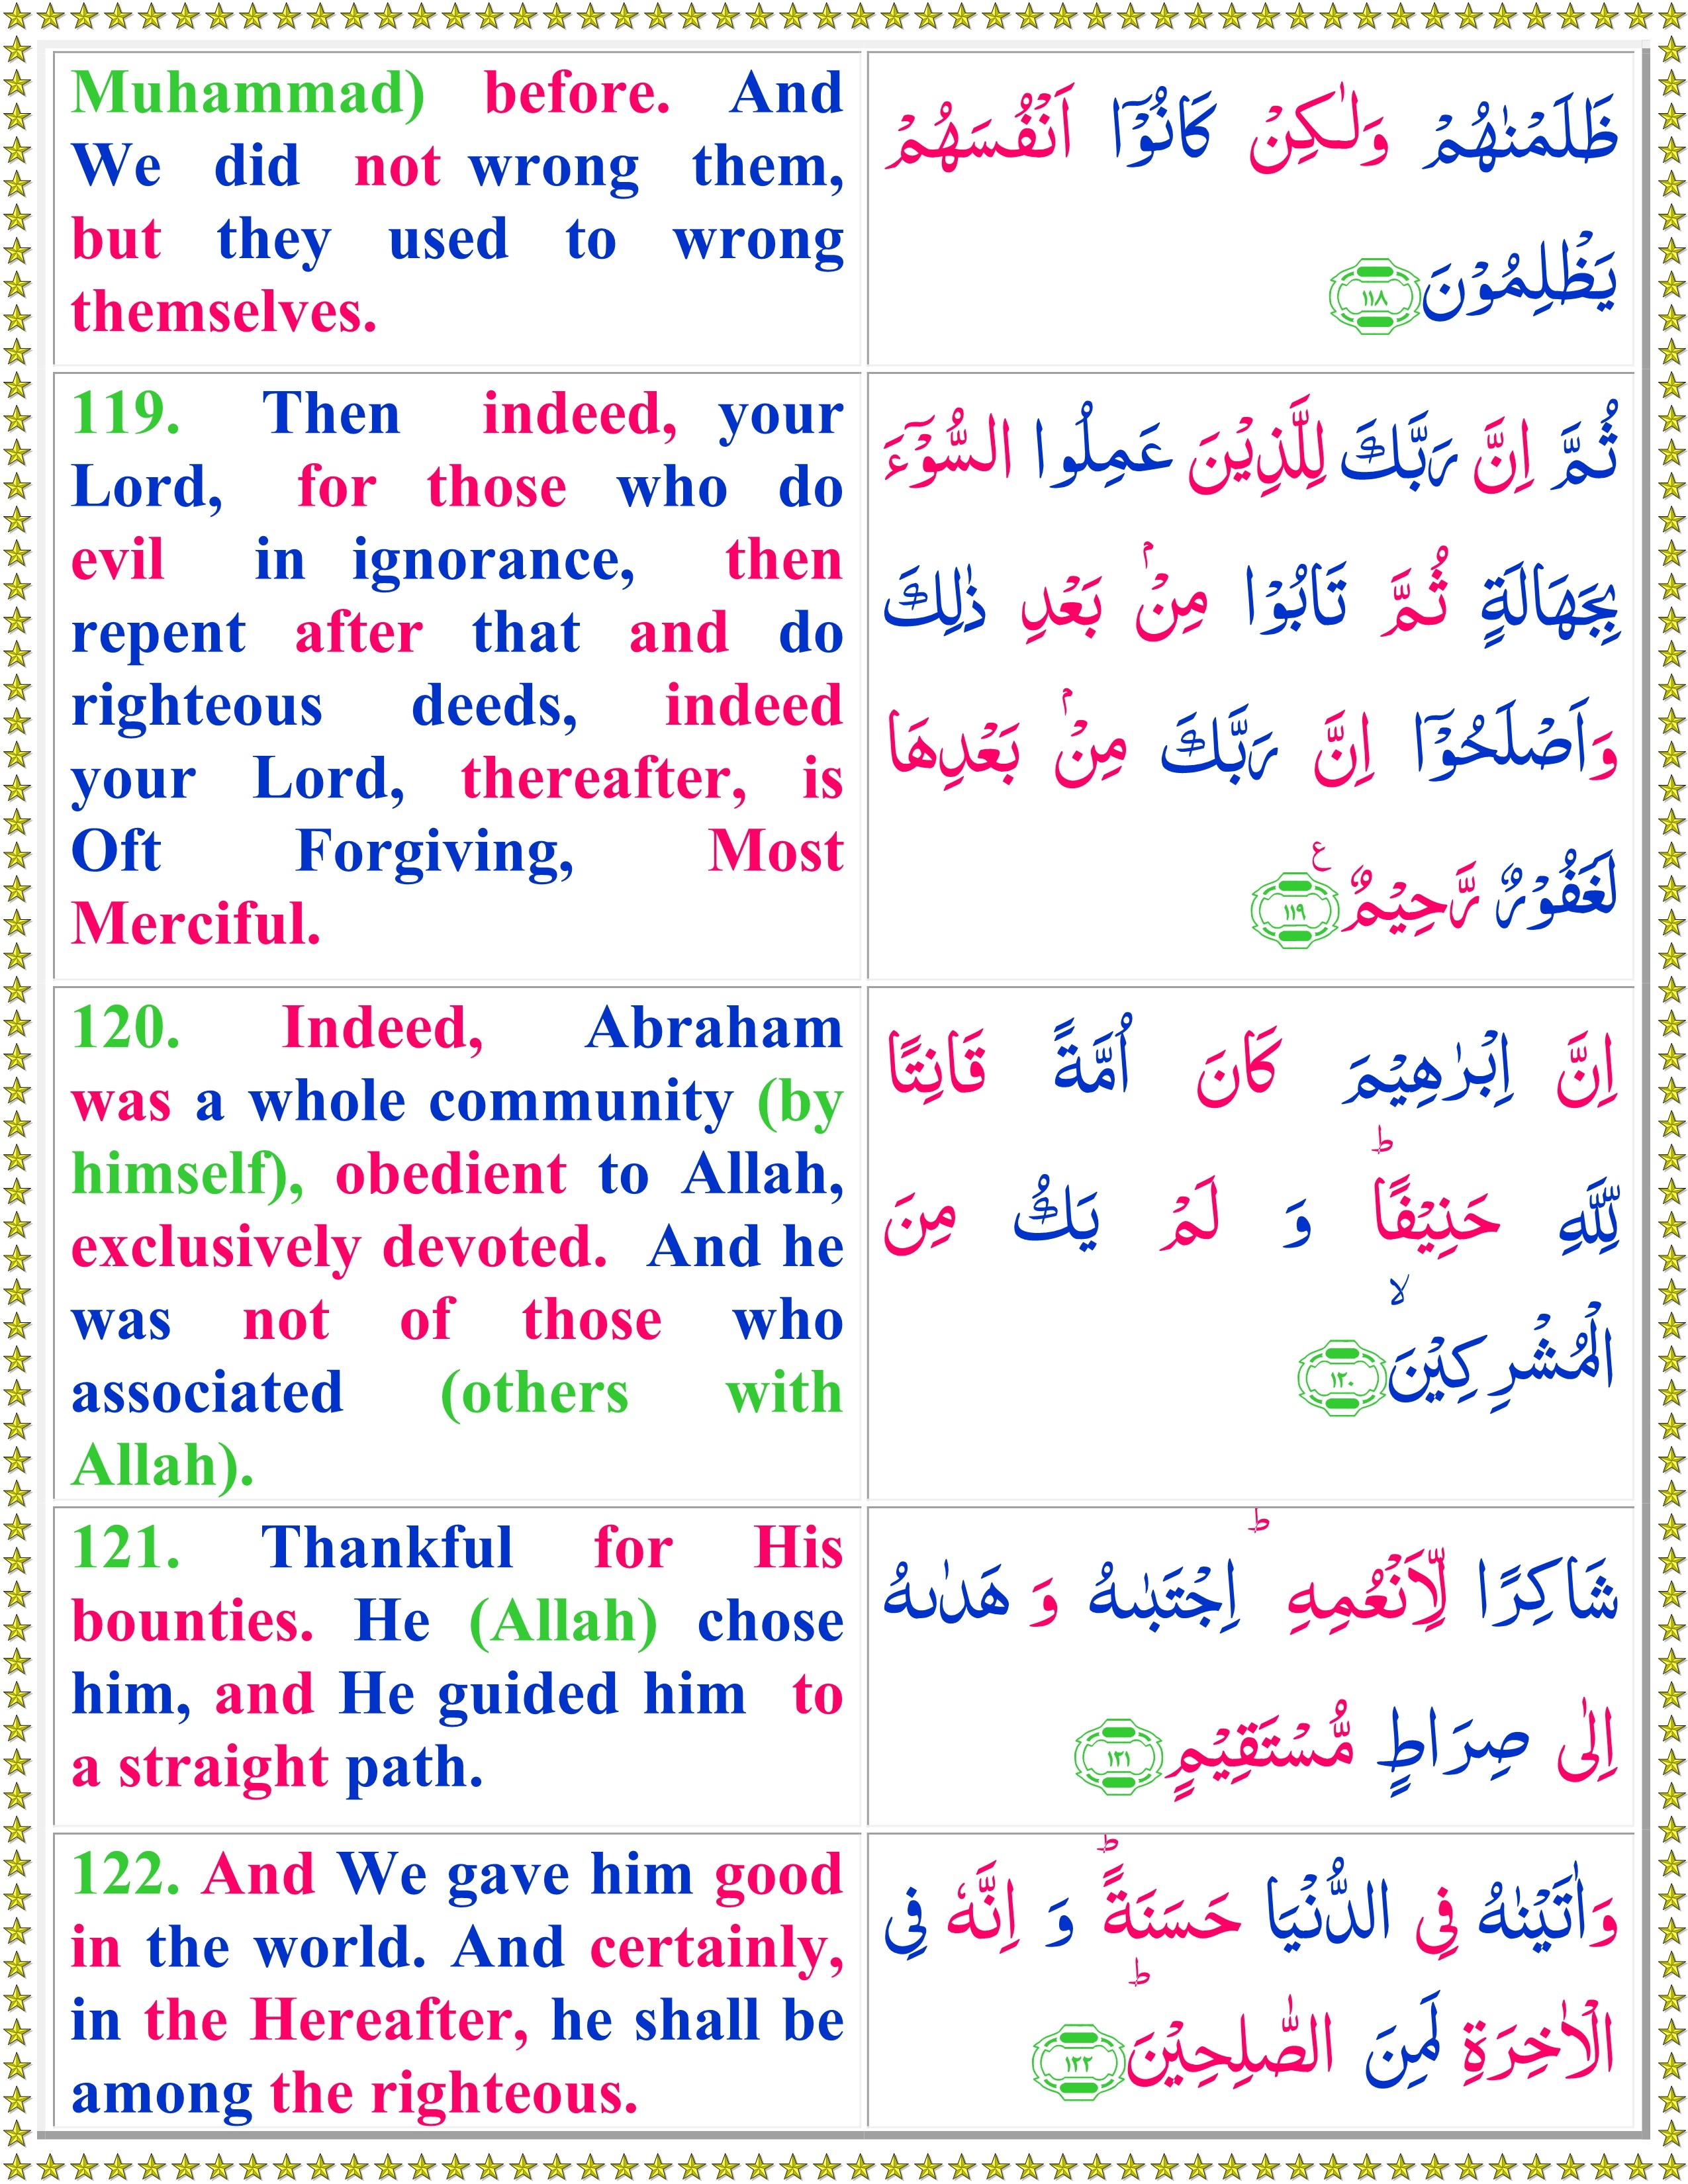 Muhammad) before. And
We did not wrong them,
but they used to wrong
themselves.
ظَلَمْنٰهُمْ وَلٰـكِنْ كَانُوْۤا اَنْفُسَهُمْ
يَظْلِمُوْنَ ١١٨
119. Then indeed, your
Lord, for those who do
evil in ignorance, then
repent after that and do
righteous deeds, indeed
your Lord, thereafter, is
Oft Forgiving, Most
Merciful.
ثُمَّ اِنَّ رَبَّكَ لِلَّذِيْنَ عَمِلُوا السُّوْۤءَ
بِجَهَالَةٍ ثُمَّ تَابُوْا مِنْۢ بَعْدِ ذٰلِكَ
وَاَصْلَحُوْۤا اِنَّ رَبَّكَ مِنْۢ بَعْدِهَا
لَغَفُوْرٌ رَّحِيْمٌ ع ١١٩
120. Indeed, Abraham
was a whole community (by
himself), obedient to Allah,
exclusively devoted. And he
was not of those who
associated (others with
Allah).
اِنَّ اِبْرٰهِيْمَ كَانَ اُمَّةً قَانِتًا
لِّلَّهِ حَنِيْفًاؕ وَ لَمْ يَكُ مِنَ
الْمُشْرِكِيْنَۙ ١٢٠
121. Thankful for His
bounties. He (Allah) chose
him, and He guided him to
a straight path.
شَاكِرًا لِّاَنْعُمِهِؕ اِجْتَبٰٮهُ وَ هَدٰٮهُ
اِلٰى صِرَاطٍ مُّسْتَقِيْمٍ ١٢١
122. And We gave him good
in the world. And certainly,
in the Hereafter, he shall be
among the righteous.
وَاٰتَيْنٰهُ فِى الدُّنْيَا حَسَنَةًؕ وَ اِنَّهٗ فِى
الْاٰخِرَةِ لَمِنَ الصّٰلِحِيْنَؕ ١٢٢